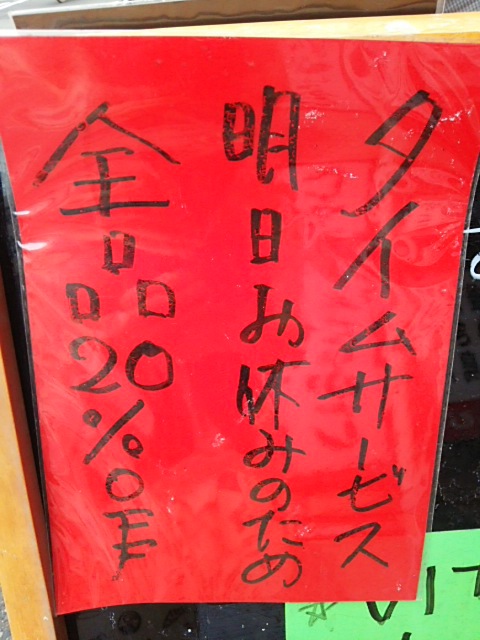 タイムサービス
明日お休みのため
全品20%OFF
VIT